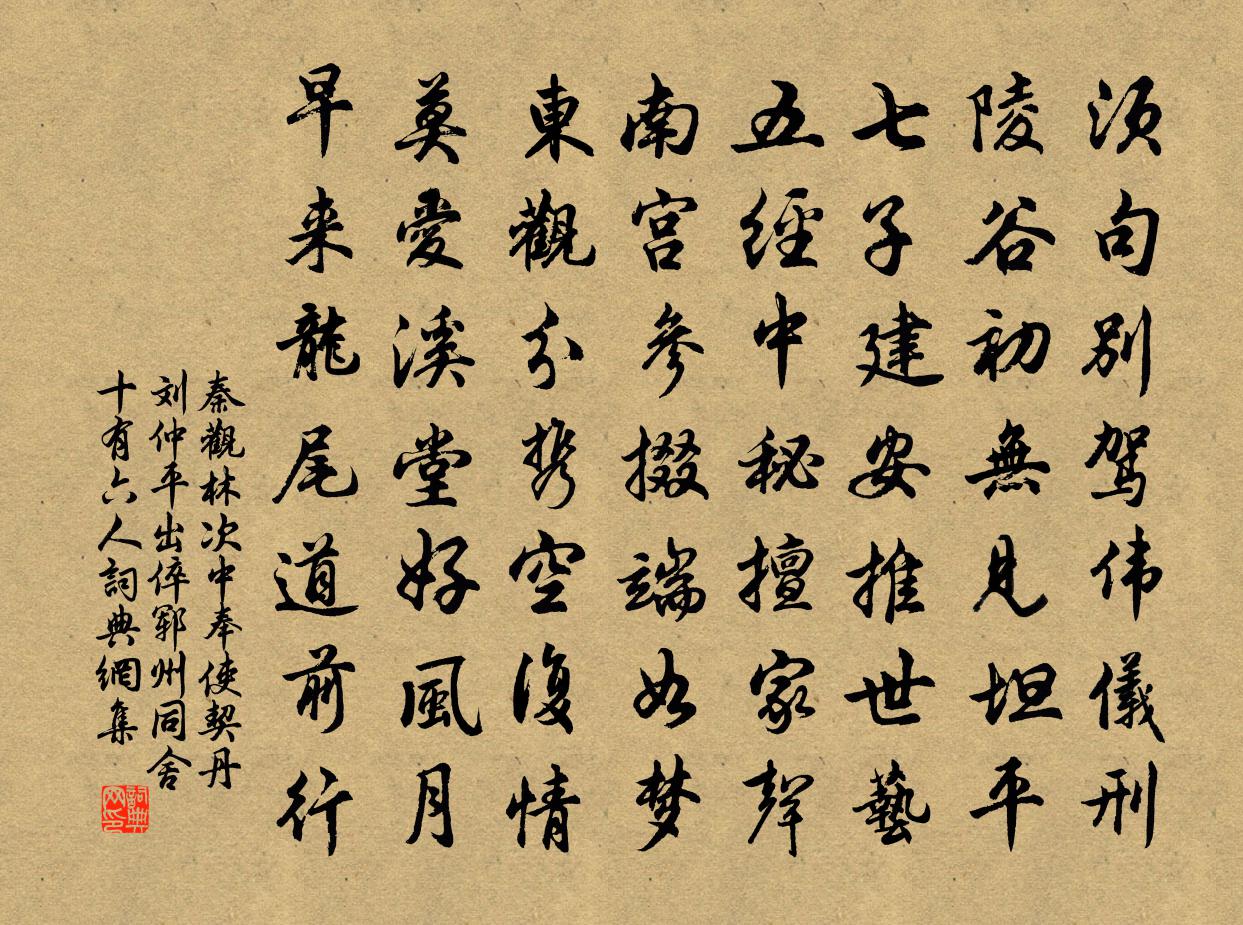 須句別駕伟儀刑
陵谷初無見坦平
七子建安推世藝
五經中秘擅家聲
南宮參掇端如梦
東觀分携空復情
莫愛溪堂好風月
早来龍尾道前行
秦觀林次中奉使契丹
刘仲平出倅鄆州同舍
十有六人詞典網集
詞典网印